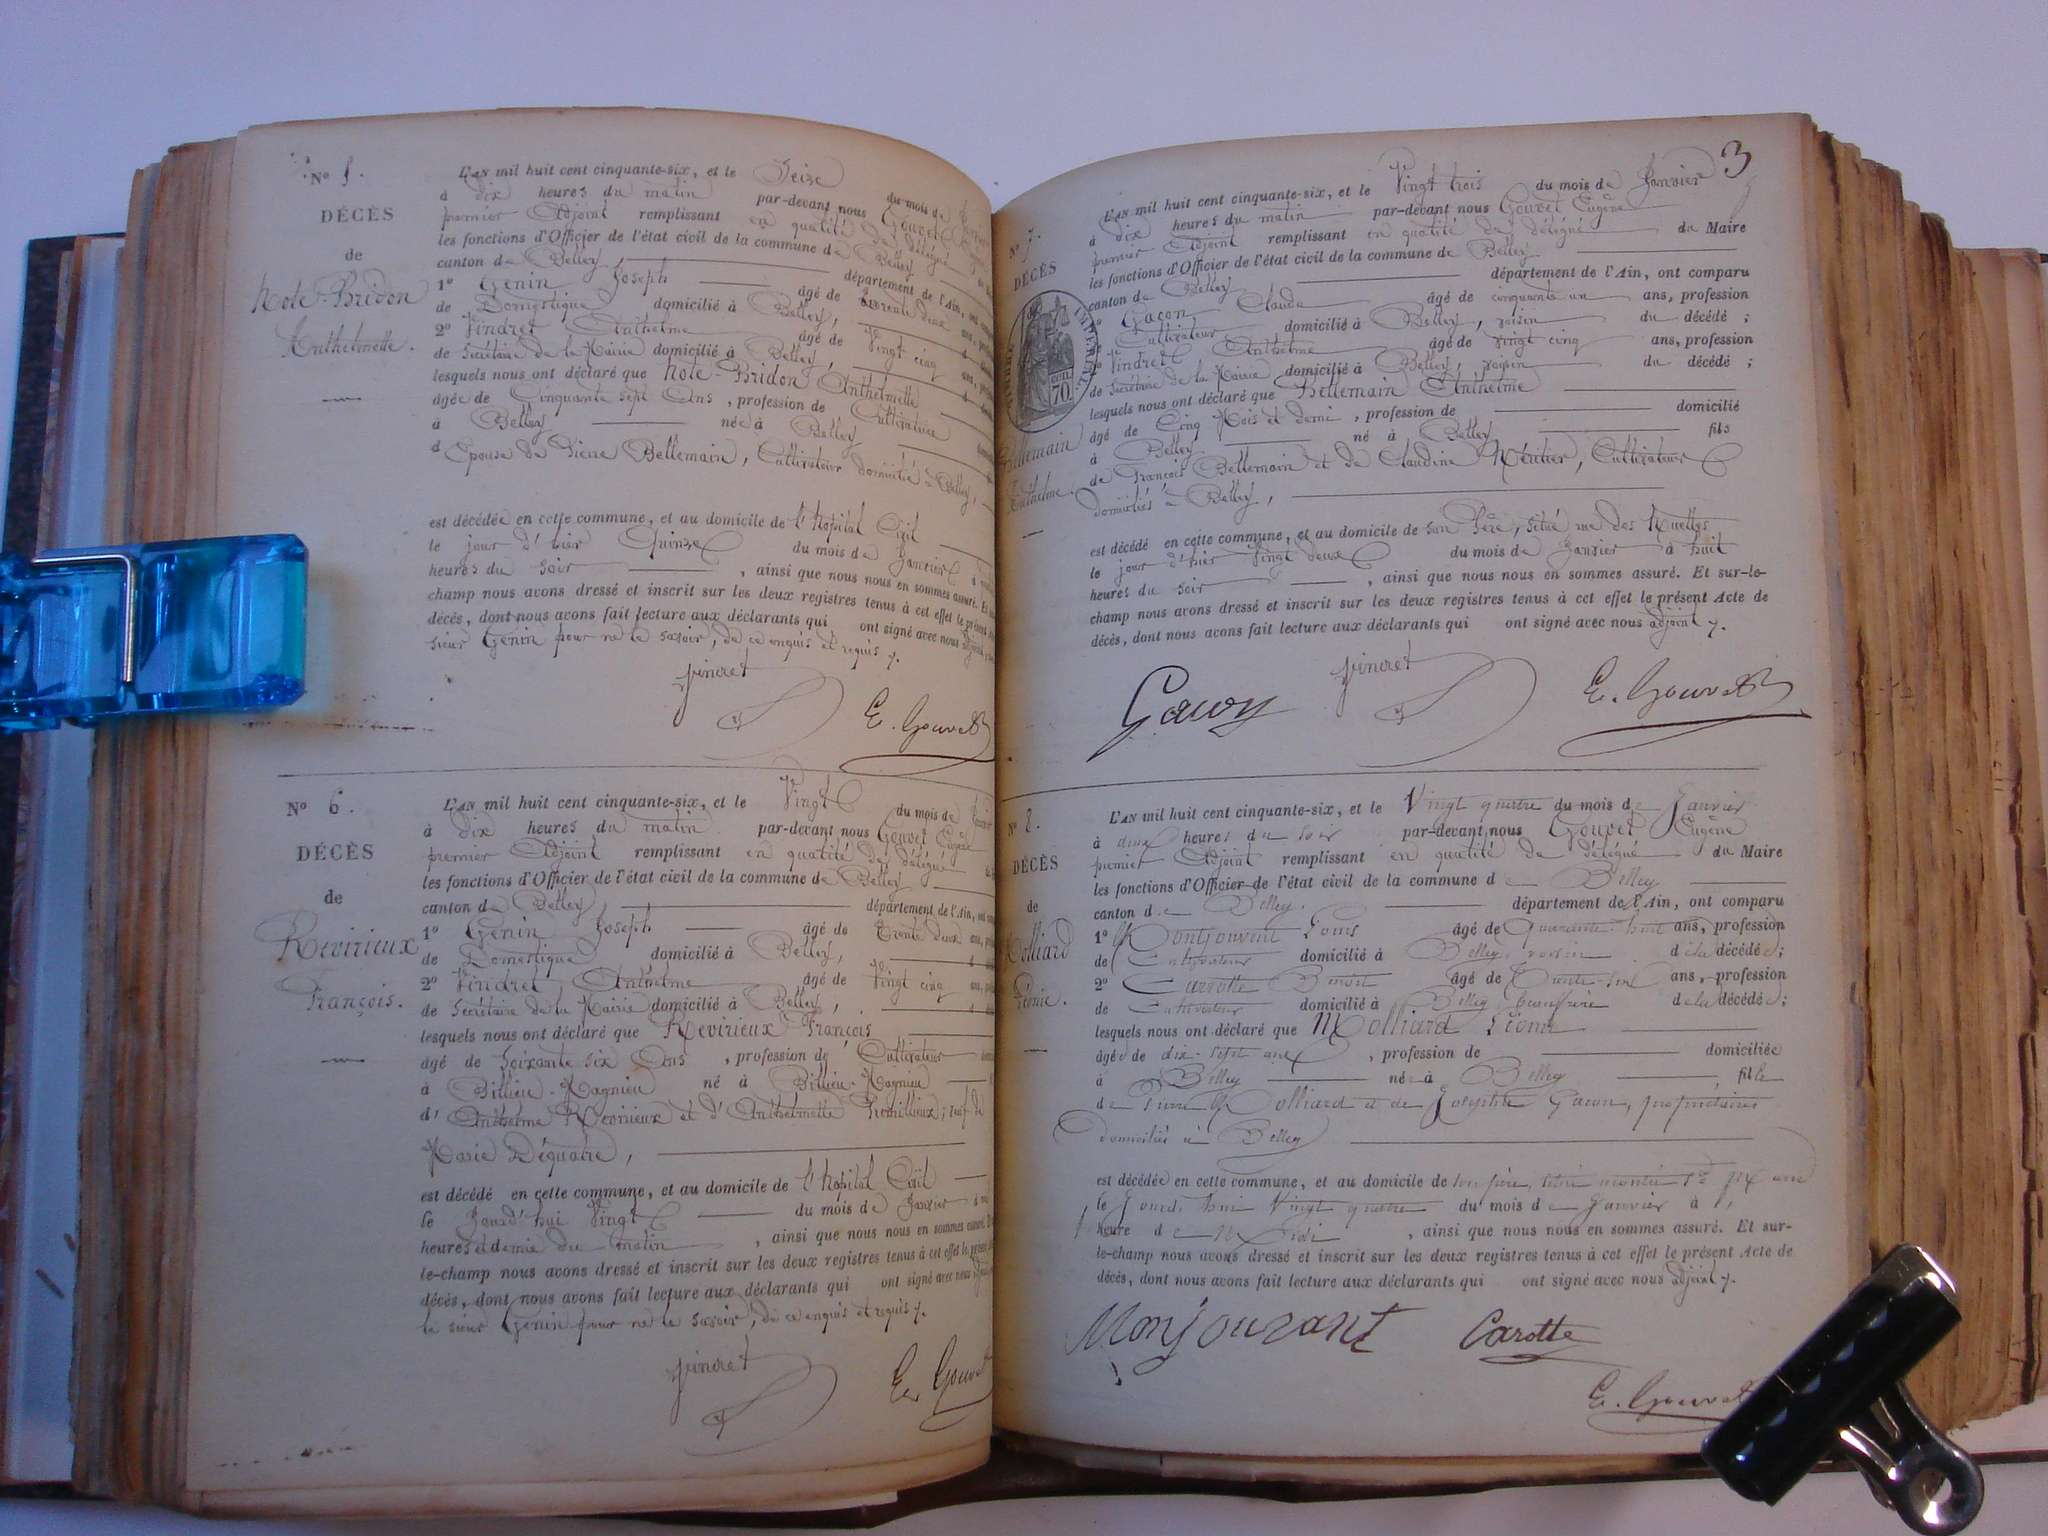 No 5.
DÉCÈS
de
Note-Bridon
Anthelmette.
L'AN mil huit cent cinquante-six, et le Seize du mois de
à dix heures du matin par-devant nous Gouvet
premier Adjoint remplissant en qualité de délégué
les fonctions d'Officier de l'état civil de la commune de Belley
canton de Belley, département de l'Ain, ont
1º Genin Joseph âgé de trente deux ans,
de Domestique domicilié à Belley,
2º Vindret Anthelme âgé de Vingt cinq ans,
de Secrétaire de la Mairie domicilié à Belley,
lesquels nous ont déclaré que Note-Bridon Anthelmette
âgée de Cinquante sept Ans, profession de Cultivatrice
à Belley née à Belley
d Epouse de Pierre Bellemain, Cultivateur domicilié à Belley,
est décédée en cette commune, et au domicile de l'hopital Civil
le jour d'hier Quinze du mois de Janvier à
heures du soir, ainsi que nous nous en sommes assuré. Et
champ nous avons dressé et inscrit sur les deux registres tenus à cet effet le présent
décès, dont nous avons fait lecture aux déclarants qui ont signé avec nous adjoint,
sieur Genin pour ne le savoir, de ce enquis et requis ./.
Vindret
E. Gouvet
No 6.
DÉCÈS
de
Revirieux
François.
L'AN mil huit cent cinquante-six, et le Vingt du mois de Janvier
à dix heures du matin par-devant nous Gouvet Eugène
premier Adjoint remplissant en qualité de délégué
les fonctions d'Officier de l'état civil de la commune de Belley
canton de Belley, département de l'Ain, ont
1º Genin Joseph âgé de trente deux ans,
de Domestique domicilié à Belley,
2º Vindret Anthelme âgé de Vingt cinq ans,
de Secrétaire de la Mairie domicilié à Belley,
lesquels nous ont déclaré que Revirieux François
âgé de Soixante six Ans, profession de Cultivateur
à Billieu-Magnieu né à Billieu-Magnieu
d'Anthelme Revirieux et d'Anthelmette Promillieux; veuf de
Marie Déquatre,
est décédé en cette commune, et au domicile de l'hopital Civil
le Jourd'hui Vingt du mois de Janvier à
heures et demie du matin, ainsi que nous nous en sommes assuré.
le-champ nous avons dressé et inscrit sur les deux registres tenus à cet effet le
décès, dont nous avons fait lecture aux déclarants qui ont signé avec nous
le sieur Genin pour ne le savoir, de ce enquis et requis ./.
Vindret
E. Gouvet
3
No 7.
DÉCÈS
TIMBRE IMPÉRIAL
70
Bellemain
Anthelme.
L'AN mil huit cent cinquante-six, et le Vingt trois du mois de Janvier
à dix heures du matin par-devant nous Gouvet Eugène
premier Adjoint remplissant en qualité de délégué du Maire
les fonctions d'Officier de l'état civil de la commune de Belley
canton de Belley département de l'Ain, ont comparu
Gacon Claude âgé de cinquante un ans, profession
Cultivateur domicilié à Belley, voisin du décédé;
Vindret Anthelme âgé de vingt cinq ans, profession
de Secrétaire de la Mairie domicilié à Belley, voisin du décédé;
lesquels nous ont déclaré que Bellemain Anthelme
âgé de Cinq Mois et demi, profession de domicilié
à Belley né à Belley fils
de François Bellemain et de Claudine Mercier, Cultivateurs
domiciliés à Belley,
est décédé en cette commune, et au domicile de son Père, situé rue des Ruelles
le jour d'hier Vingt deux du mois de Janvier à huit
heures du soir, ainsi que nous nous en sommes assuré. Et sur-le-
champ nous avons dressé et inscrit sur les deux registres tenus à cet effet le présent Acte de
décès, dont nous avons fait lecture aux déclarants qui ont signé avec nous adjoint ./.
Gacon
Vindret
E. Gouvet
No 8.
DÉCÈS
de
Molliard
L'AN mil huit cent cinquante-six, et le Vingt quatre du mois de Janvier
à deux heures du soir par-devant nous Gouvet Eugène
premier Adjoint remplissant en qualité de délégué du Maire
les fonctions d'Officier de l'état civil de la commune de Belley
canton de Belley. département de l'Ain, ont comparu
1º Montjouvent Louis âgé de Quarante-huit ans, profession
de Cultivateur domicilié à Belley, voisin de la décédée;
2º Carotte Benoit âgé de Trente-six ans, profession
de Cultivateur domicilié à Belley, beaufrère de la décédée;
lesquels nous ont déclaré que Molliard
âgée de dix-sept ans, profession de domiciliée
à Belley née à Belley fille
de Pierre Molliard et de Josephte Gacon, propriétaires
domiciliés à Belley
est décédée en cette commune, et au domicile de son père,
le Jourd'hui Vingt quatre du mois de Janvier à l',
heure de Midi, ainsi que nous nous en sommes assuré. Et sur-
le-champ nous avons dressé et inscrit sur les deux registres tenus à cet effet le présent Acte de
décès, dont nous avons fait lecture aux déclarants qui ont signé avec nous adjoint ./.
Monjouvant
Carotte
E. Gouvet